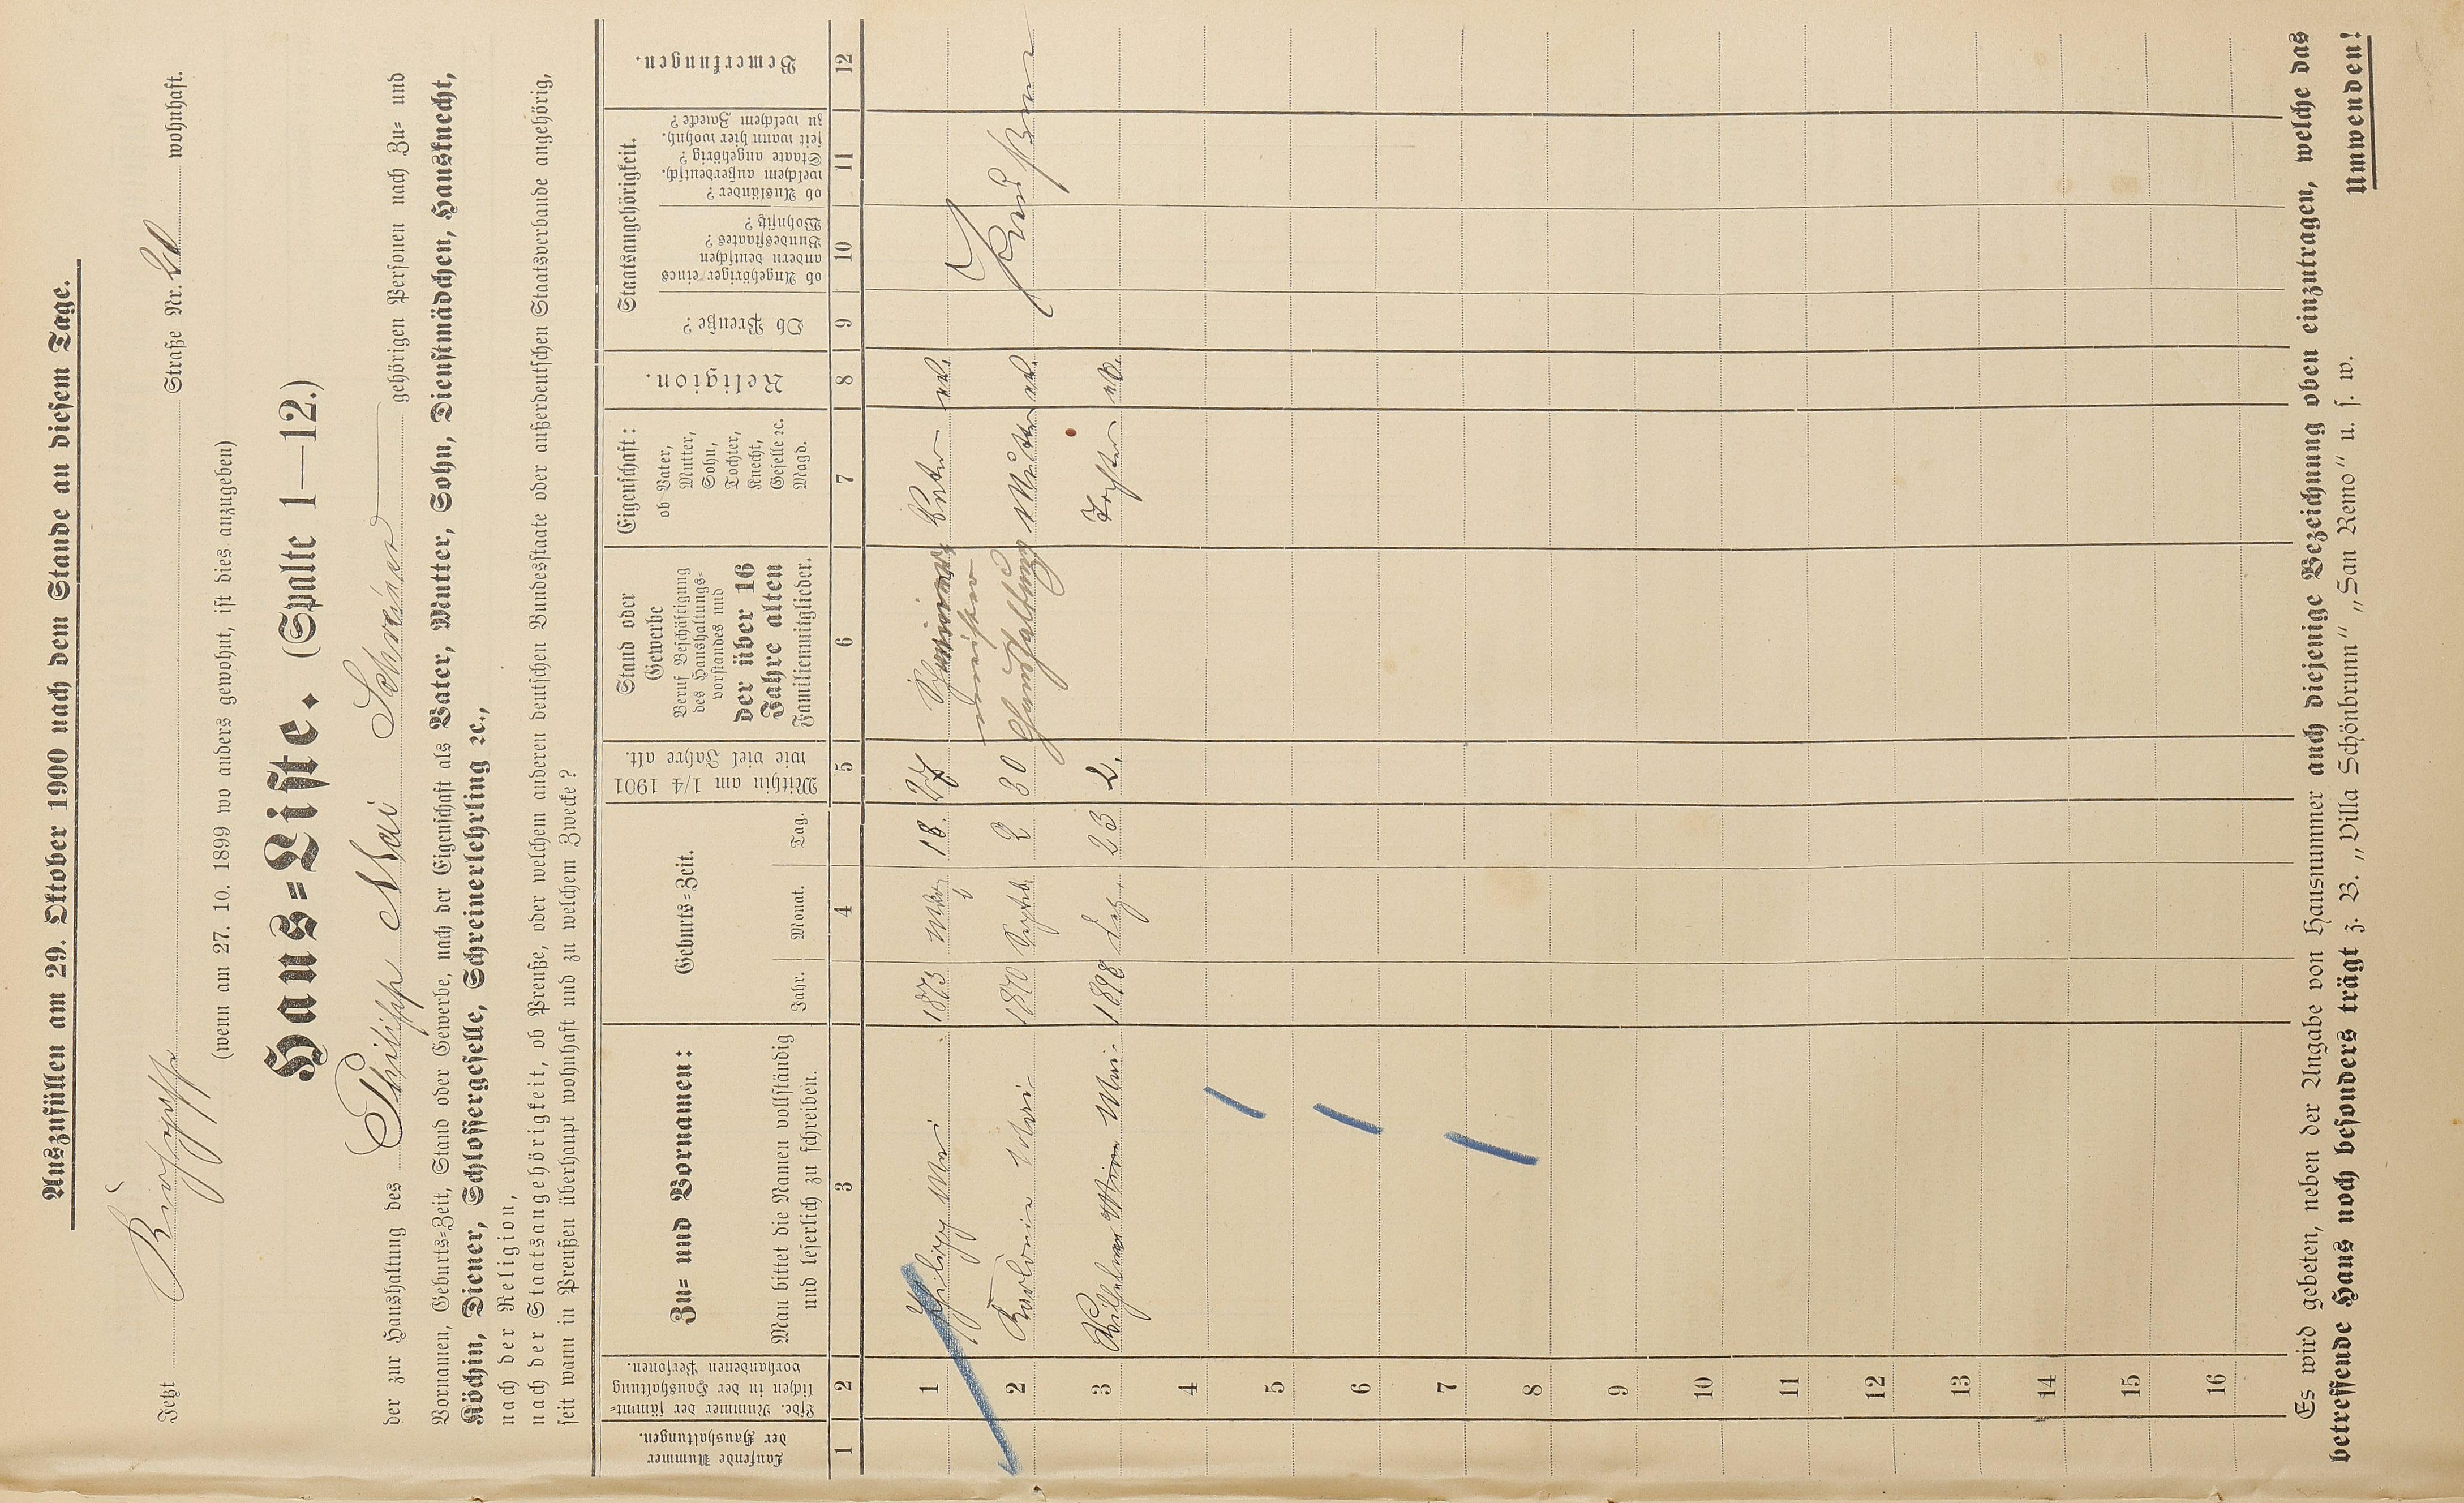 Auszufüllen am 29. Oktober 1900 nach dem Stande an diesem Tage.
Jetzt Straße Nr. wohnhaft.
(wenn am 27. 10. 1899 wo anders gewohnt, ist dies anzugeben)
Haus-Liste. (Spalte 1—12.)
der zur Haushaltung des Philipp Mai Schreiner gehörigen Personen nach Zu- und
Vornamen, Geburts-Zeit, Stand oder Gewerbe, nach der Eigenschaft als Vater, Mutter, Sohn, Dienstmädchen, Hausknecht,
Köchin, Diener, Schlossergeselle, Schreinerlehrling ꝛc.,
nach der Religion,
nach der Staatsangehörigkeit, ob Preuße, oder welchem anderen deutschen Bundesstaate oder außerdeutschen Staatsverbande angehörig,
seit wann in Preußen überhaupt wohnhaft und zu welchem Zwecke?
Laufende Nummer
der Haushaltungen.
Lfde. Nummer der sämmt-
lichen in der Haushaltung
vorhandenen Personen.
Zu- und Vornamen:
Man bittet die Namen vollständig
und leserlich zu schreiben.
Geburts-Zeit.
Jahr. Monat. Tag.
Mithin am 1/4 1901
wie viel Jahre alt.
Stand oder
Gewerbe
Beruf Beschäftigung
des Haushaltungs-
vorstandes und
der über 16
Jahre alten
Familienmitglieder.
Eigenschaft:
ob Vater,
Mutter,
Sohn,
Tochter,
Knecht,
Geselle ꝛc.
Magd.
Religion.
Staatsangehörigkeit.
Ob Preuße?
ob Angehöriger eines
andern deutschen
Bundesstaates?
Wohnsitz?
ob Ausländer?
welchem außerdeutsch.
Staate angehörig?
seit wann hier wohnh.
zu welchem Zwecke?
Bemerkungen.
1 2 3 4 5 6 7 8 9 10 11 12
1 Philipp Mai 1873 18. 27 Schreiner Vater ev.
2 Mai 1870 Septbr. 2 30 Haushaltung Mutter ev. Preußen
3 Mai 1898 Dez. 23 2. Tochter ev.
4
5
6
7
8
9
10
11
12
13
14
15
16
Es wird gebeten, neben der Angabe von Hausnummer auch diejenige Bezeichnung oben einzutragen, welche das
betreffende Haus noch besonders trägt z. B. „Villa Schönbrunn" „San Remo" u. s. w.
Umwenden!